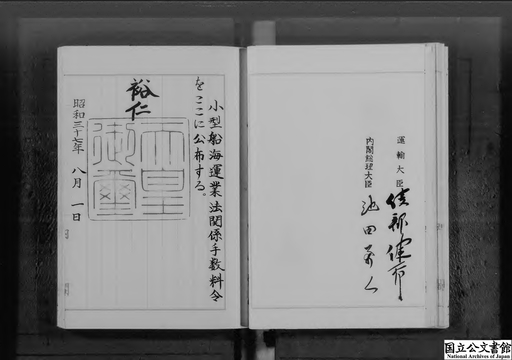 小型船海運業法関係手数料令
をここに公布する。
裕仁
天皇
御璽
昭和三十七年 八月 一日
運輸大臣
綾部健太郎
内閣総理大臣
池田勇人
国立公文書館
National Archives of Japan